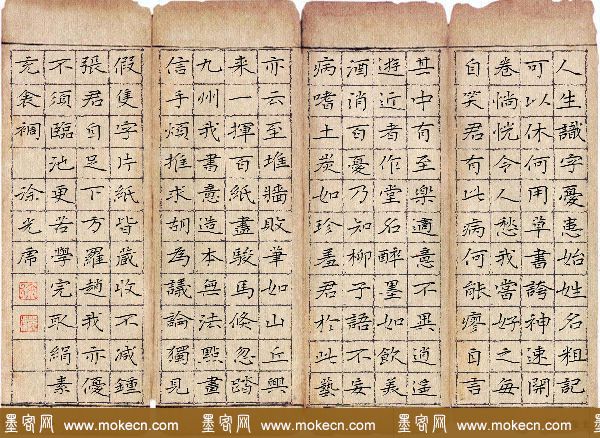 人生識字憂患始姓名粗記
可以休何用草書誇神速開
卷惝恍令人愁我嘗好之每
自笑君有此病何能瘳自言
其中有至樂適意不異逍遥
遊近者作堂名醉墨如飲美
酒消百憂乃知柳子語不妄
病嗜土炭如珍羞君於此藝
亦云至堆牆敗筆如山丘興
来一揮百紙盡駿馬倐忽踏
九州我書意造本無法點畫
信手煩推求胡為議論獨見
假隻字片紙皆藏收不减鍾
張君自足下方羅趙我亦優
不須臨池更苦學完取絹素
充衾裯 徐光
墨客网 www.mokecn.com 墨客网 www.mokecn.com 墨客网 www.mokecn.com